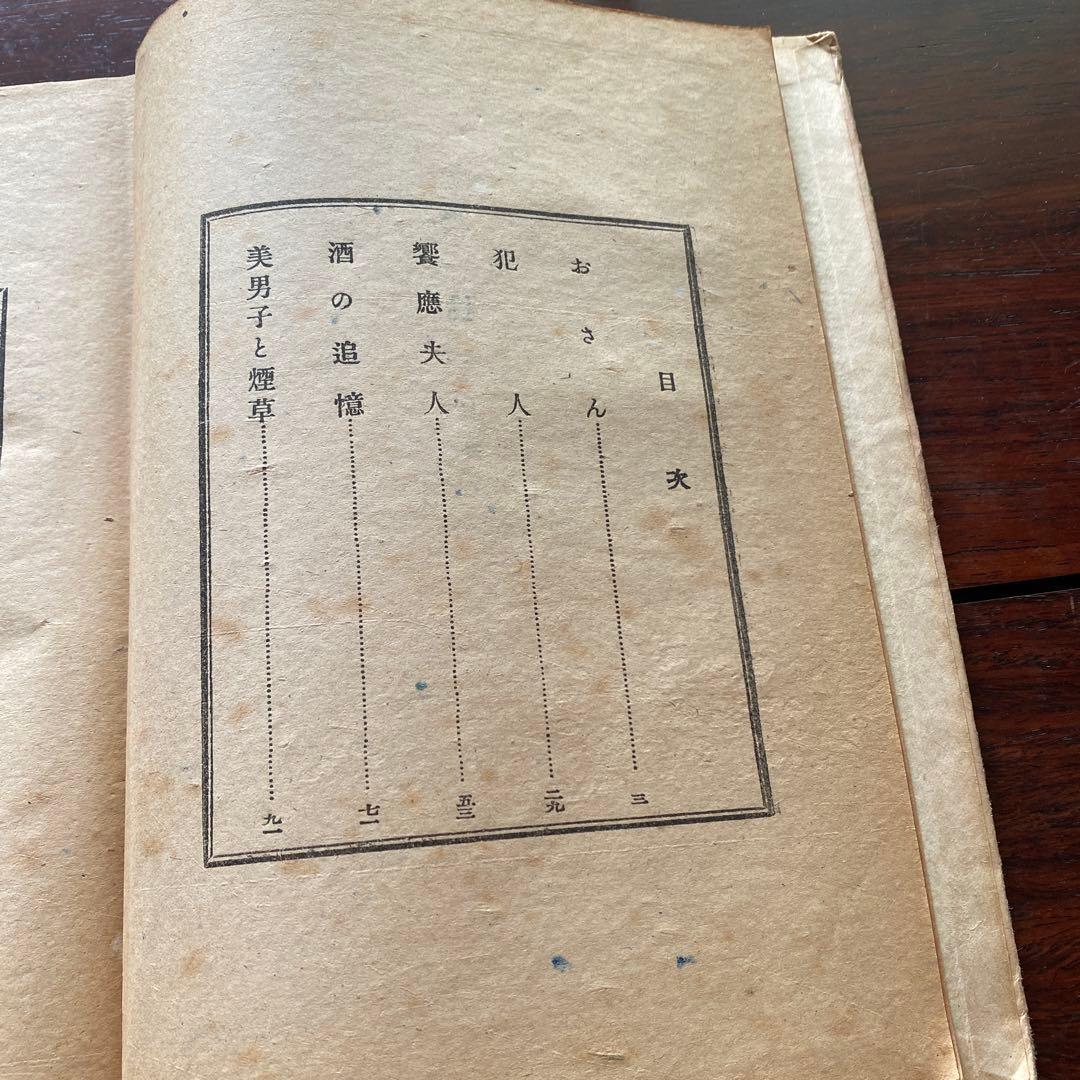 目次
おさん……………三
犯人……………二九
饗應夫人……………五三
酒の追憶……………七一
美男子と煙草……………九一